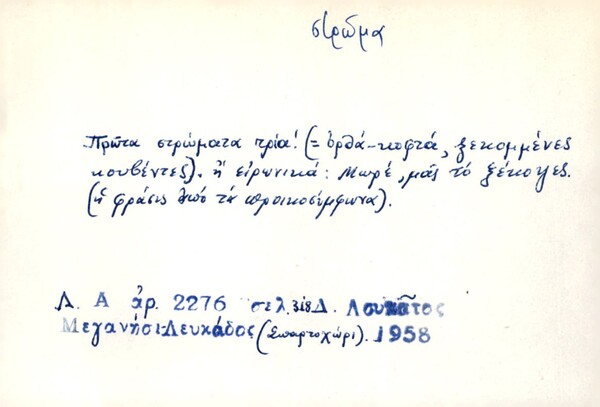 στρῶμα
Πρῶτα στρώματα τρία! (= ὀρθά-κοφτά, ξεκομμένες
κουβέντες). ἢ εἰρωνικά: Μωρέ, μᾶς τὸ ξέκοψες.
(ἡ φράσις ἀπὸ τὰ προικοσύμφωνα).
Λ. Α ἀρ. 2276 σελ. 318 Δ. Λουκᾶτος
Μεγανήσι-Λευκάδος (Σπαρτοχώρι). 1958